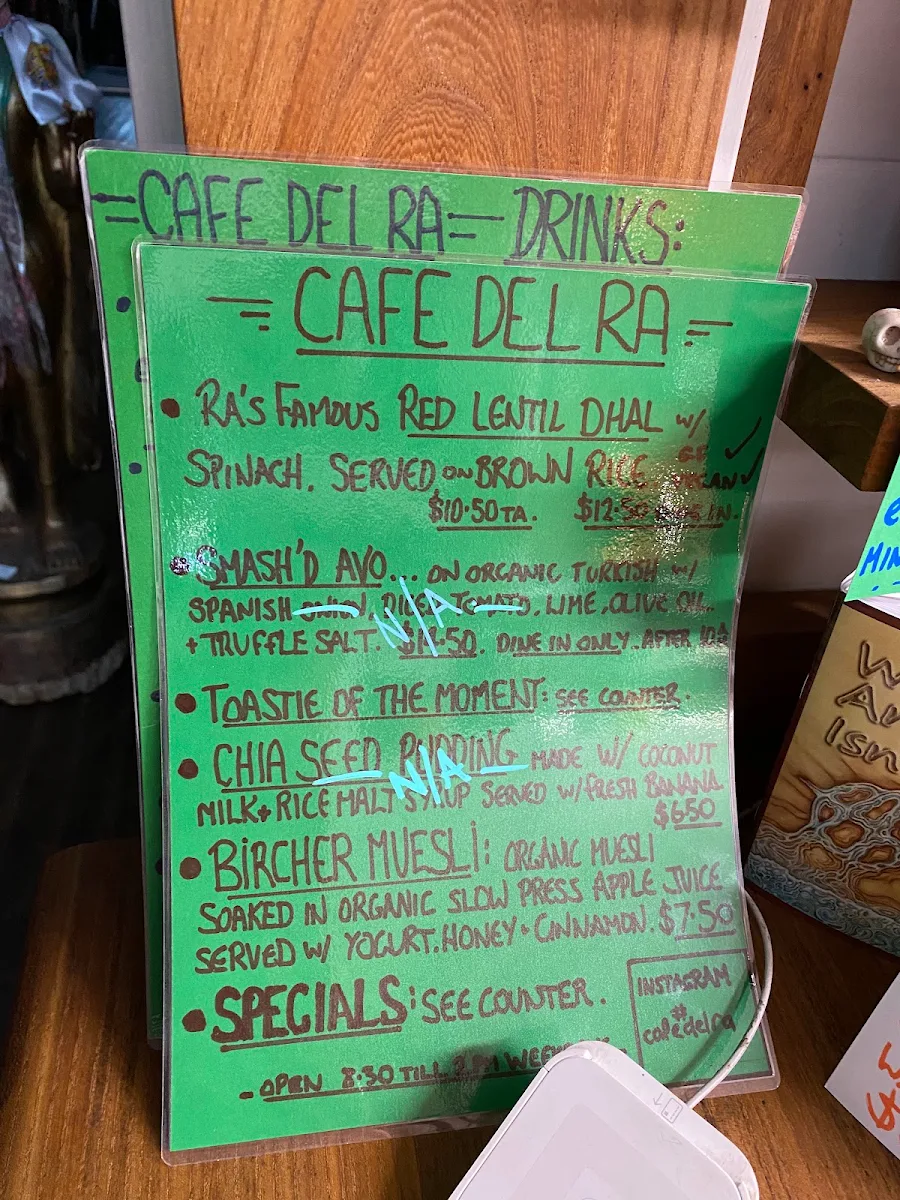 =CAFE DEL RA= DRINKS:
CAFE DEL RA
• RA'S FAMOUS RED LENTIL DHAL W/
SPINACH. SERVED ON BROWN RICE GF ✓ VEGAN ✓
$10.50 TA. $12.50 DINE IN.
• SMASH'D AVO... ON ORGANIC TURKISH W/
SPANISH ONION, TOMATO, LIME, OLIVE OIL
+ TRUFFLE SALT. DINE IN ONLY. AFTER
N/A
• TOASTIE OF THE MOMENT: SEE COUNTER.
• CHIA SEED PUDDING MADE W/ COCONUT
N/A
MILK + RICE MALT SYRUP SERVED W/ FRESH BANANA
$6.50
• BIRCHER MUESLI: ORGANIC MUESLI
SOAKED IN ORGANIC SLOW PRESS APPLE JUICE
SERVED W/ YOGURT, HONEY + CINNAMON. $7.50
• SPECIALS: SEE COUNTER.
INSTAGRAM
#
cafedelra
- OPEN 8:30 TILL
MIN